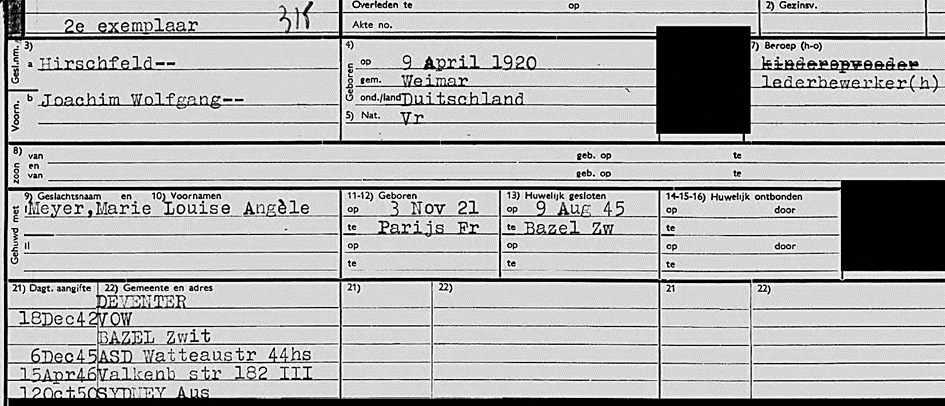 Overleden te op
2) Gezinsv.
2e exemplaar 315
Akte no.
Gesl.nm. 3) a Hirschfeld--
Voorn. b Joachim Wolfgang--
4) Geboren op 9 April 1920
gem. Weimar
ond./land Duitschland
5) Nat. Vr
7) Beroep (h-o)
kinderopvoeder
lederbewerker(h)
8) zoon van geb. op te
en
van geb. op te
Gehuwd met 9) Geslachtsnaam en 10) Voornamen
Meyer,Marie Louise Angèle
II
11-12) Geboren
op 3 Nov 21
te Parijs Fr
op
te
13) Huwelijk gesloten
op 9 Aug 45
te Bazel Zw
op
te
14-15-16) Huwelijk ontbonden
op door
te
op door
te
21) Dagt. aangifte 22) Gemeente en adres 21) 22) 21 22)
DEVENTER
18Dec42 VOW
BAZEL Zwit
6Dec45 ASD Watteaustr 44hs
15Apr46 Valkenb str 182 III
12Oct50 SYDNEY Aus